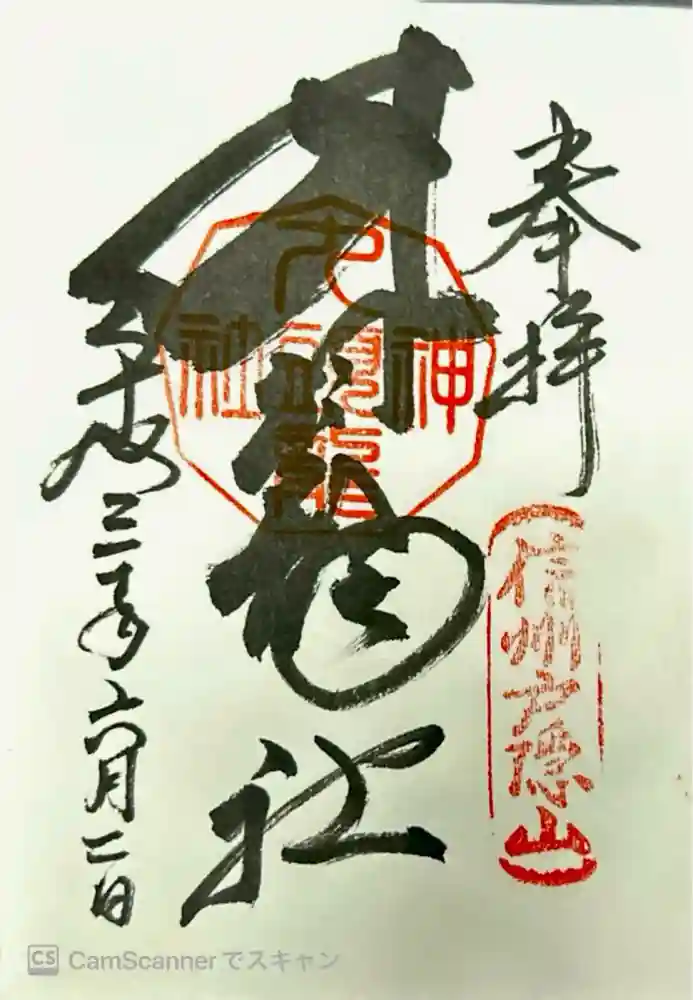 奉拝
信州戸隠山
九頭龍社
神
九頭龍
社
三年六月二日
CS CamScannerでスキャン